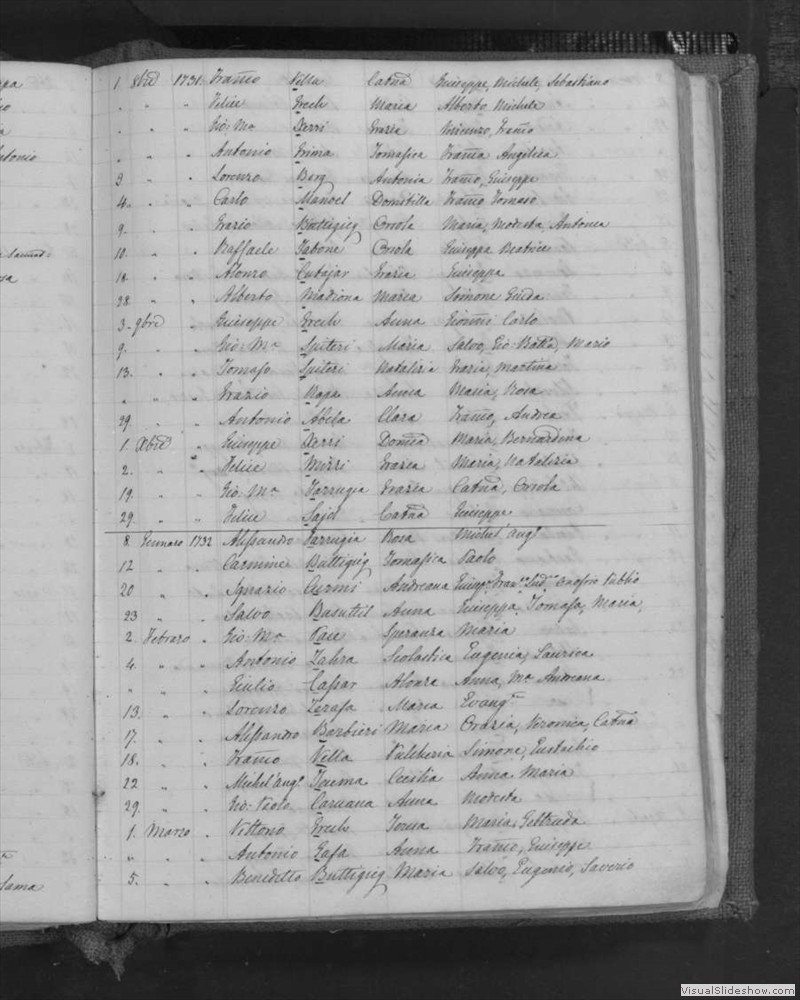 1 8bre 1731. Franco Vella Catna Giuseppe, Michele, Sebastiano
" " " Felice Grech Maria Alberto Michele
" " " Gio: Ma Xerri Grazia Vincenzo, Franco
" " " Antonio Grima Tomasica Franca Angelica
3 " " Lorenzo Borg Antonia Franco, Giuseppe
4. " " Carlo Manoel Domitilla Franco Tomaso
9. " " Grazio Buttigieg Orsola Maria, Modesta, Antonia
10. " " Raffaele Tabone Orsola Giuseppa Beatrice
18. " " Alonzo Cutajar Grazia Giuseppa
28. " " Alberto Madiona Maria Simone Guida
3. 9bre " Giuseppe Grech Anna Giovni Carlo
9. " " Gio: Ma Spiteri Maria Salvo, Gio: Batta, Mario
13. " " Tomaso Spiteri Natalizia Grazia, Martina
" " " Grazio Anna Maria, Rosa
29. " " Antonio Abela Clara Franco, Andrea
1. Xbre " Giuseppe Xerri Domca Maria, Bernardina
2. " " Felice Mizzi Grazia Maria, Natalizia
19. " " Gio: Ma Farrugia Grazia Catna, Orsola
29. " " Felice Sajd Catna Giuseppe
8. Gennaro 1732 Alessandro Farrugia Rosa Michel'ango
12 " " Carmine Buttigieg Tomasica Paolo
20 " " Ignazio Curmi Andreana Onofrio Publio
23 " " Salvo Busuttil Anna Giuseppa, Tomasa, Maria,
2. Febraro " Gio: Ma Pau Speranza Maria
4. " " Antonio Zahra Scolastica Eugenia, Laurica
" " " Giulio Cassar Alonza Anna, Ma Andreana
13. " " Lorenzo Zerafa Maria Evangta
17. " " Alessandro Barbieri Maria Grazia, Veronica, Catna
18. " " Franco Vella Pulcheria Simone, Eustachio
22 " " Michel'ango Teuma Cecilia Anna Maria
29. " " Gio: Paolo Caruana Anna Modesta
1. Marzo " Vittorio Grech Maria, Geltruda
" " " Antonio Anna Franco, Giuseppe
5. " " Benedetto Buttigieg Maria Salvo, Eugenio, Saverio
VisualSlideshow.com